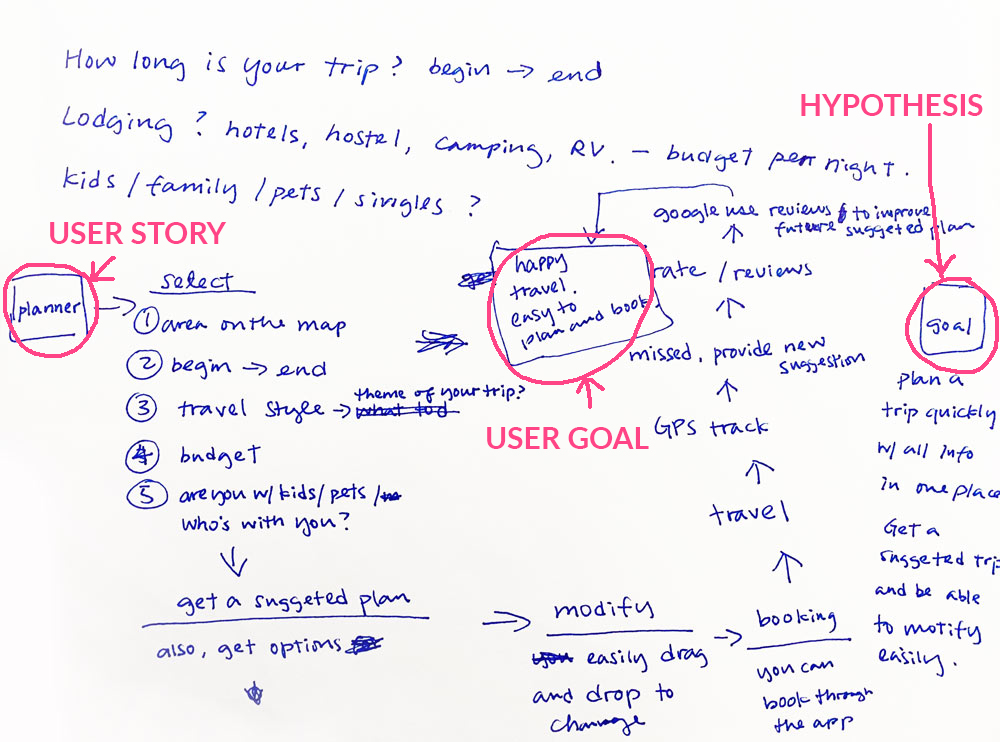 How long is your trip? begin → end
Lodging? hotels, hostel, camping, RV. — budget per night.
kids / family / pets / singles?
HYPOTHESIS
USER STORY
planner →
select
① area on the map
② begin → end
③ travel style → theme of your trip?
what to d
④ budget
⑤ are you w/ kids/ pets /
who's with you?
get a suggeted plan
also, get options
modify
you easily drag
and drop to
change
booking
you can
book through
the app
travel
GPS track
missed, provide new
suggestion
rate / reviews
google use reviews to improve
future suggeted plan
happy
travel.
easy to
plan and book.
USER GOAL
goal
plan a
trip quickly
w/ all info
in one place
Get a
suggeted trip
and be able
to motify
easily.